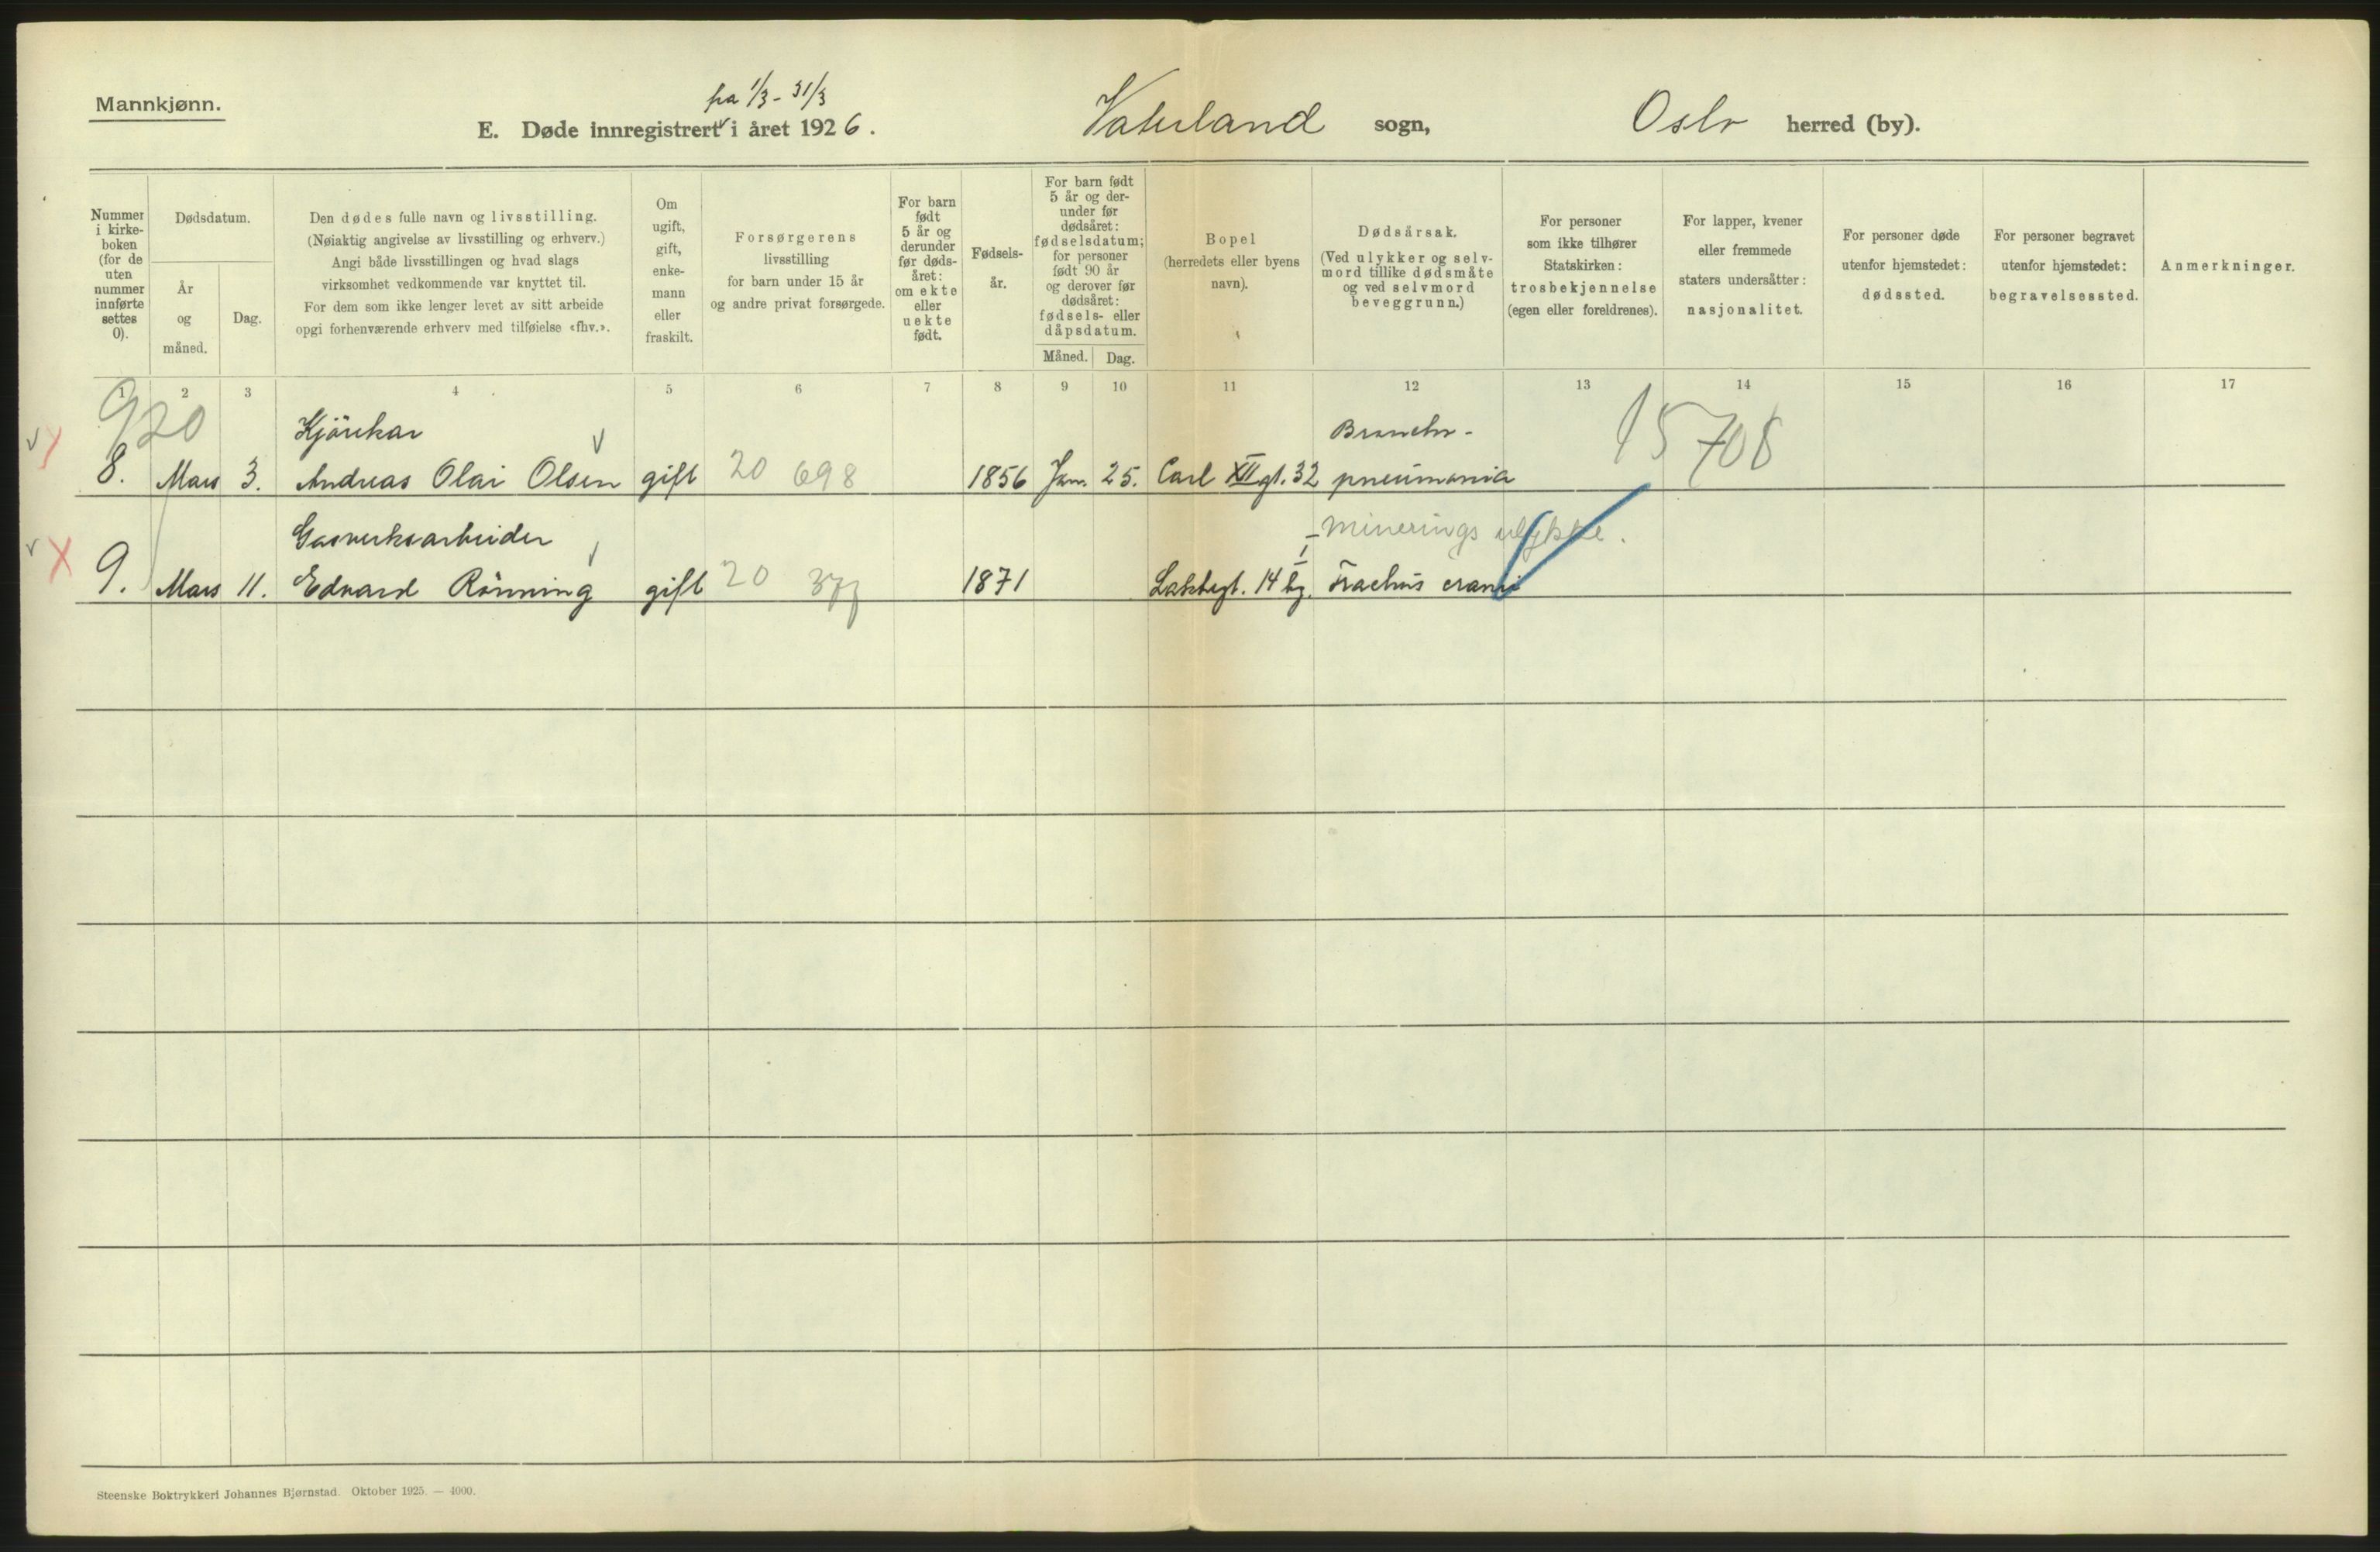 Mannkjønn.
fra 1/3 - 31/3
E. Døde innregistrert i året 1926.
Vaterland sogn,
Oslo herred (by).
Nummer i kirke-boken (for de uten nummer innførte settes 0).
Dødsdatum.
År og måned.
Dag.
Den dødes fulle navn og livsstilling.
(Nøiaktig angivelse av livsstilling og erhverv.)
Angi både livsstillingen og hvad slags
virksomhet vedkommende var knyttet til.
For dem som ikke lenger levet av sitt arbeide
opgi forhenværende erhverv med tilføielse «fhv.».
Om ugift, gift, enke-mann eller fraskilt.
Forsørgerens
livsstilling
for barn under 15 år
og andre privat forsørgede.
For barn født 5 år og derunder før døds-året: om ekte eller uekte født.
Fødsels-år.
For barn født 5 år og der-under før dødsåret: fødselsdatum; for personer født 90 år og derover før dødsåret: fødsels- eller dåpsdatum.
Måned.
Dag.
Bopel
(herredets eller byens
navn).
Dødsårsak.
(Ved ulykker og selv-
mord tillike dødsmåte
og ved selvmord
beveggrunn.)
For personer
som ikke tilhører
Statskirken:
trosbekjennelse
(egen eller foreldrenes).
For lapper, kvener
eller fremmede
staters undersåtter:
nasjonalitet.
For personer døde
utenfor hjemstedet:
dødssted.
For personer begravet
utenfor hjemstedet:
begravelsessted.
Anmerkninger.
1 2 3 4 5 6 7 8 9 10 11 12 13 14 15 16 17
920
Kjörekar
Broncho-
15 708
8. Mars 3. Andreas Olai Olsen gift 20 698 1856 Jan. 25. Carl XII gt. 32 pneumonia
Gasverksarbeider
Minerings ulykke.
9. Mars 11. Edvard Rönning gift 20 377 1871 Lakkegt. 14 Fractus cranii
Steenske Boktrykkeri Johannes Bjørnstad. Oktober 1925. — 4000.